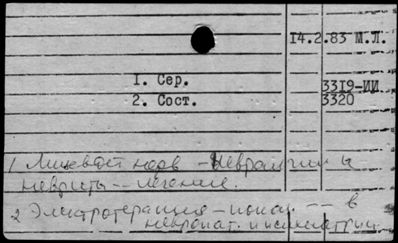 14.2.83 М.Л.
1. Сер. 3319-ИИ
2. Сост. 3320
1 Лицевой нерв - Невралгии и
невриты -- лечение.
2 Электротерапия - -- в
невропат. и психиатрии